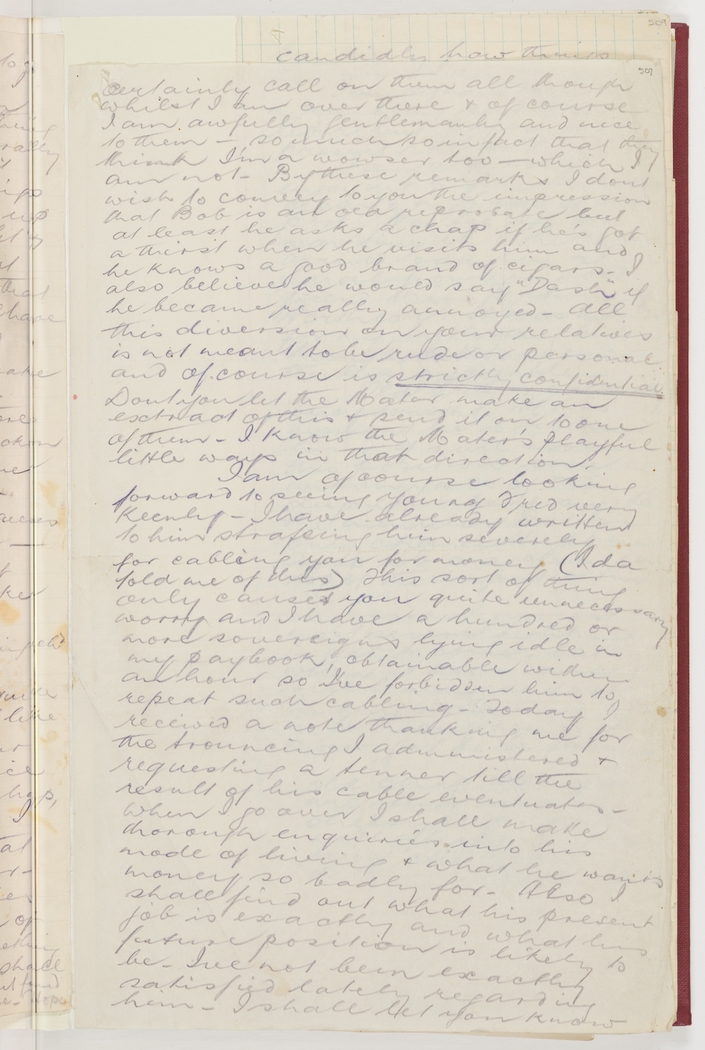 509
candidly how things
507
certainly call on them all though
whilst I am over there & of course
I am awfully gentlemanly and nice
to them — so much so in fact that they
think I'm a wowser too — which I
am not — By these remarks I dont
wish to convey to you the impression
that Bob is an old reprobate but
at least he asks a chap if he's got
a thirst when he visits him and
he knows a good brand of cigars — I
also believe he would say "Dash" if
he became really annoyed — All
this diversion on your relatives
is not meant to be rude or personal
and of course is strictly confidential
Dont you let the Mater make an
extract of this & send it on to one
of them — I know the Maters playful
little ways in that direction
I am of course looking
forward to seeing young Fred very
keenly — I have already written
to him strafing him severely
for cabling you for money (Ida
told me of this) This sort of thing
only causes you quite unnecessary
worry and I have a hundred or
more sovereigns lying idle in
my paybook, obtainable within
an hour so I've forbidden him to
repeat such cabling — Today I
received a note thanking me for
the trouncing I administered &
requesting a tenner till the
result of his cable eventuates —
when I go over I shall make
thorough enquiries into his
mode of living & what he wants
money so badly for — Also I
shall find out what his present
job is exactly and what his
future position is likely to
be — I've not been exactly
satisfied lately regarding
him — I shall let you know